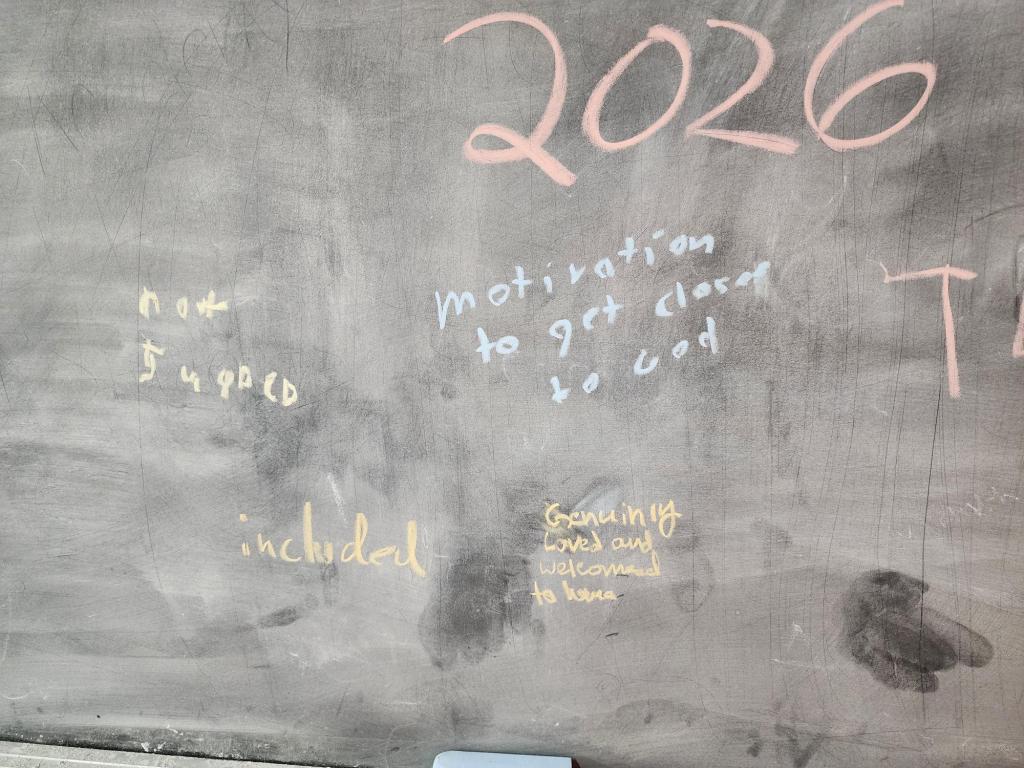 2026
motivation
to get closer
to God
T
not
included
Genuinly
Loved and
welcomed
to